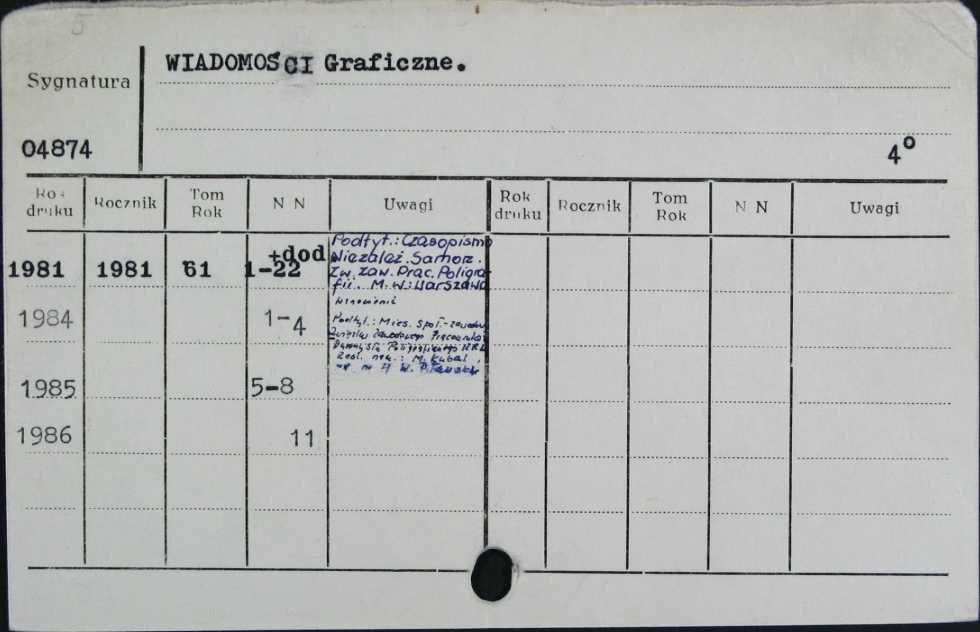 5
WIADOMOŚCI Graficzne.
Sygnatura
04874
4°
Rok druku Rocznik Tom Rok N N Uwagi Rok druku Rocznik Tom Rok N N Uwagi
1981 1981 61 1-22 +dod
Podtyt.: Czasopismo
Niezależ. Samorz.
Zw. Zaw. Prac. Poligra-
fii. M. w.: Warszawa
1984 1-4
Wznowienie
Podtyt.: Mies. Społ.-zawodowy
Związku Zawodowego Pracowników
Przemysłu Poligraficznego PRL
Red. nacz.: M. Kubal,
1985 5-8
1986 11